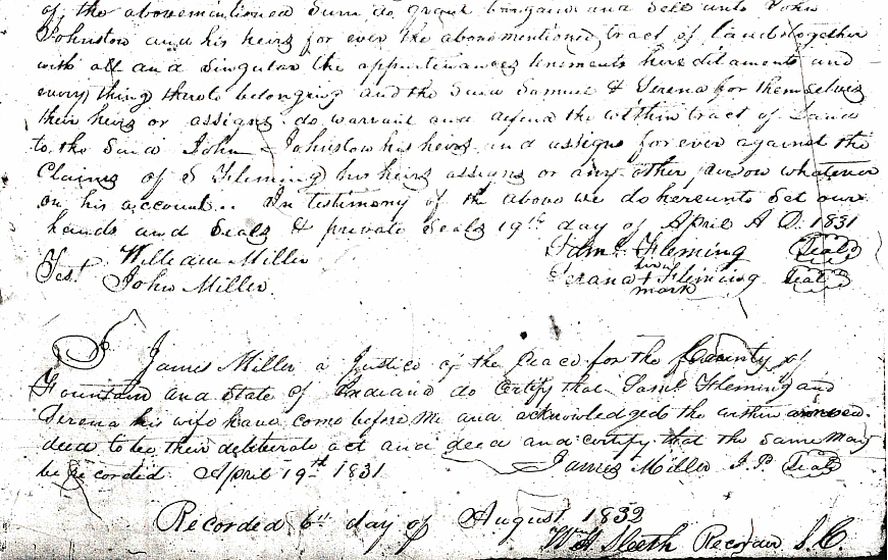 of the abovementioned Sum do grant bargain and Sell unto John
Johnston and his heirs for ever the abovementioned tract of Land together
with all and Singular the appurtenances tenements hereditaments and
every thing thereto belonging and the Said Samuel & Serena for themselves
their heirs or assigns do warrant and defend the within tract of Land
to the Said John Johnston his heirs and assigns for ever against the
Claims of S Fleming his heirs assigns or any other person whatever
on his account.. In testimony of the above we do hereunto Set our
hands and Seals & private Seals 19th day of April A D. 1831
William Miller Saml Fleming Seal
Test John Miller. Serana her + mark Fleming Seal
I James Miller a Justice of the Peace for the County of
Fountain and State of Indiana do Certify that Saml Fleming and
Serena his wife have come before me and acknowledged the within
deed to be their deliberate act and deed and certify that the Same may
be recorded April 19th 1831 James Miller J. P. Seal
Recorded 6th day of August 1832
Recorder